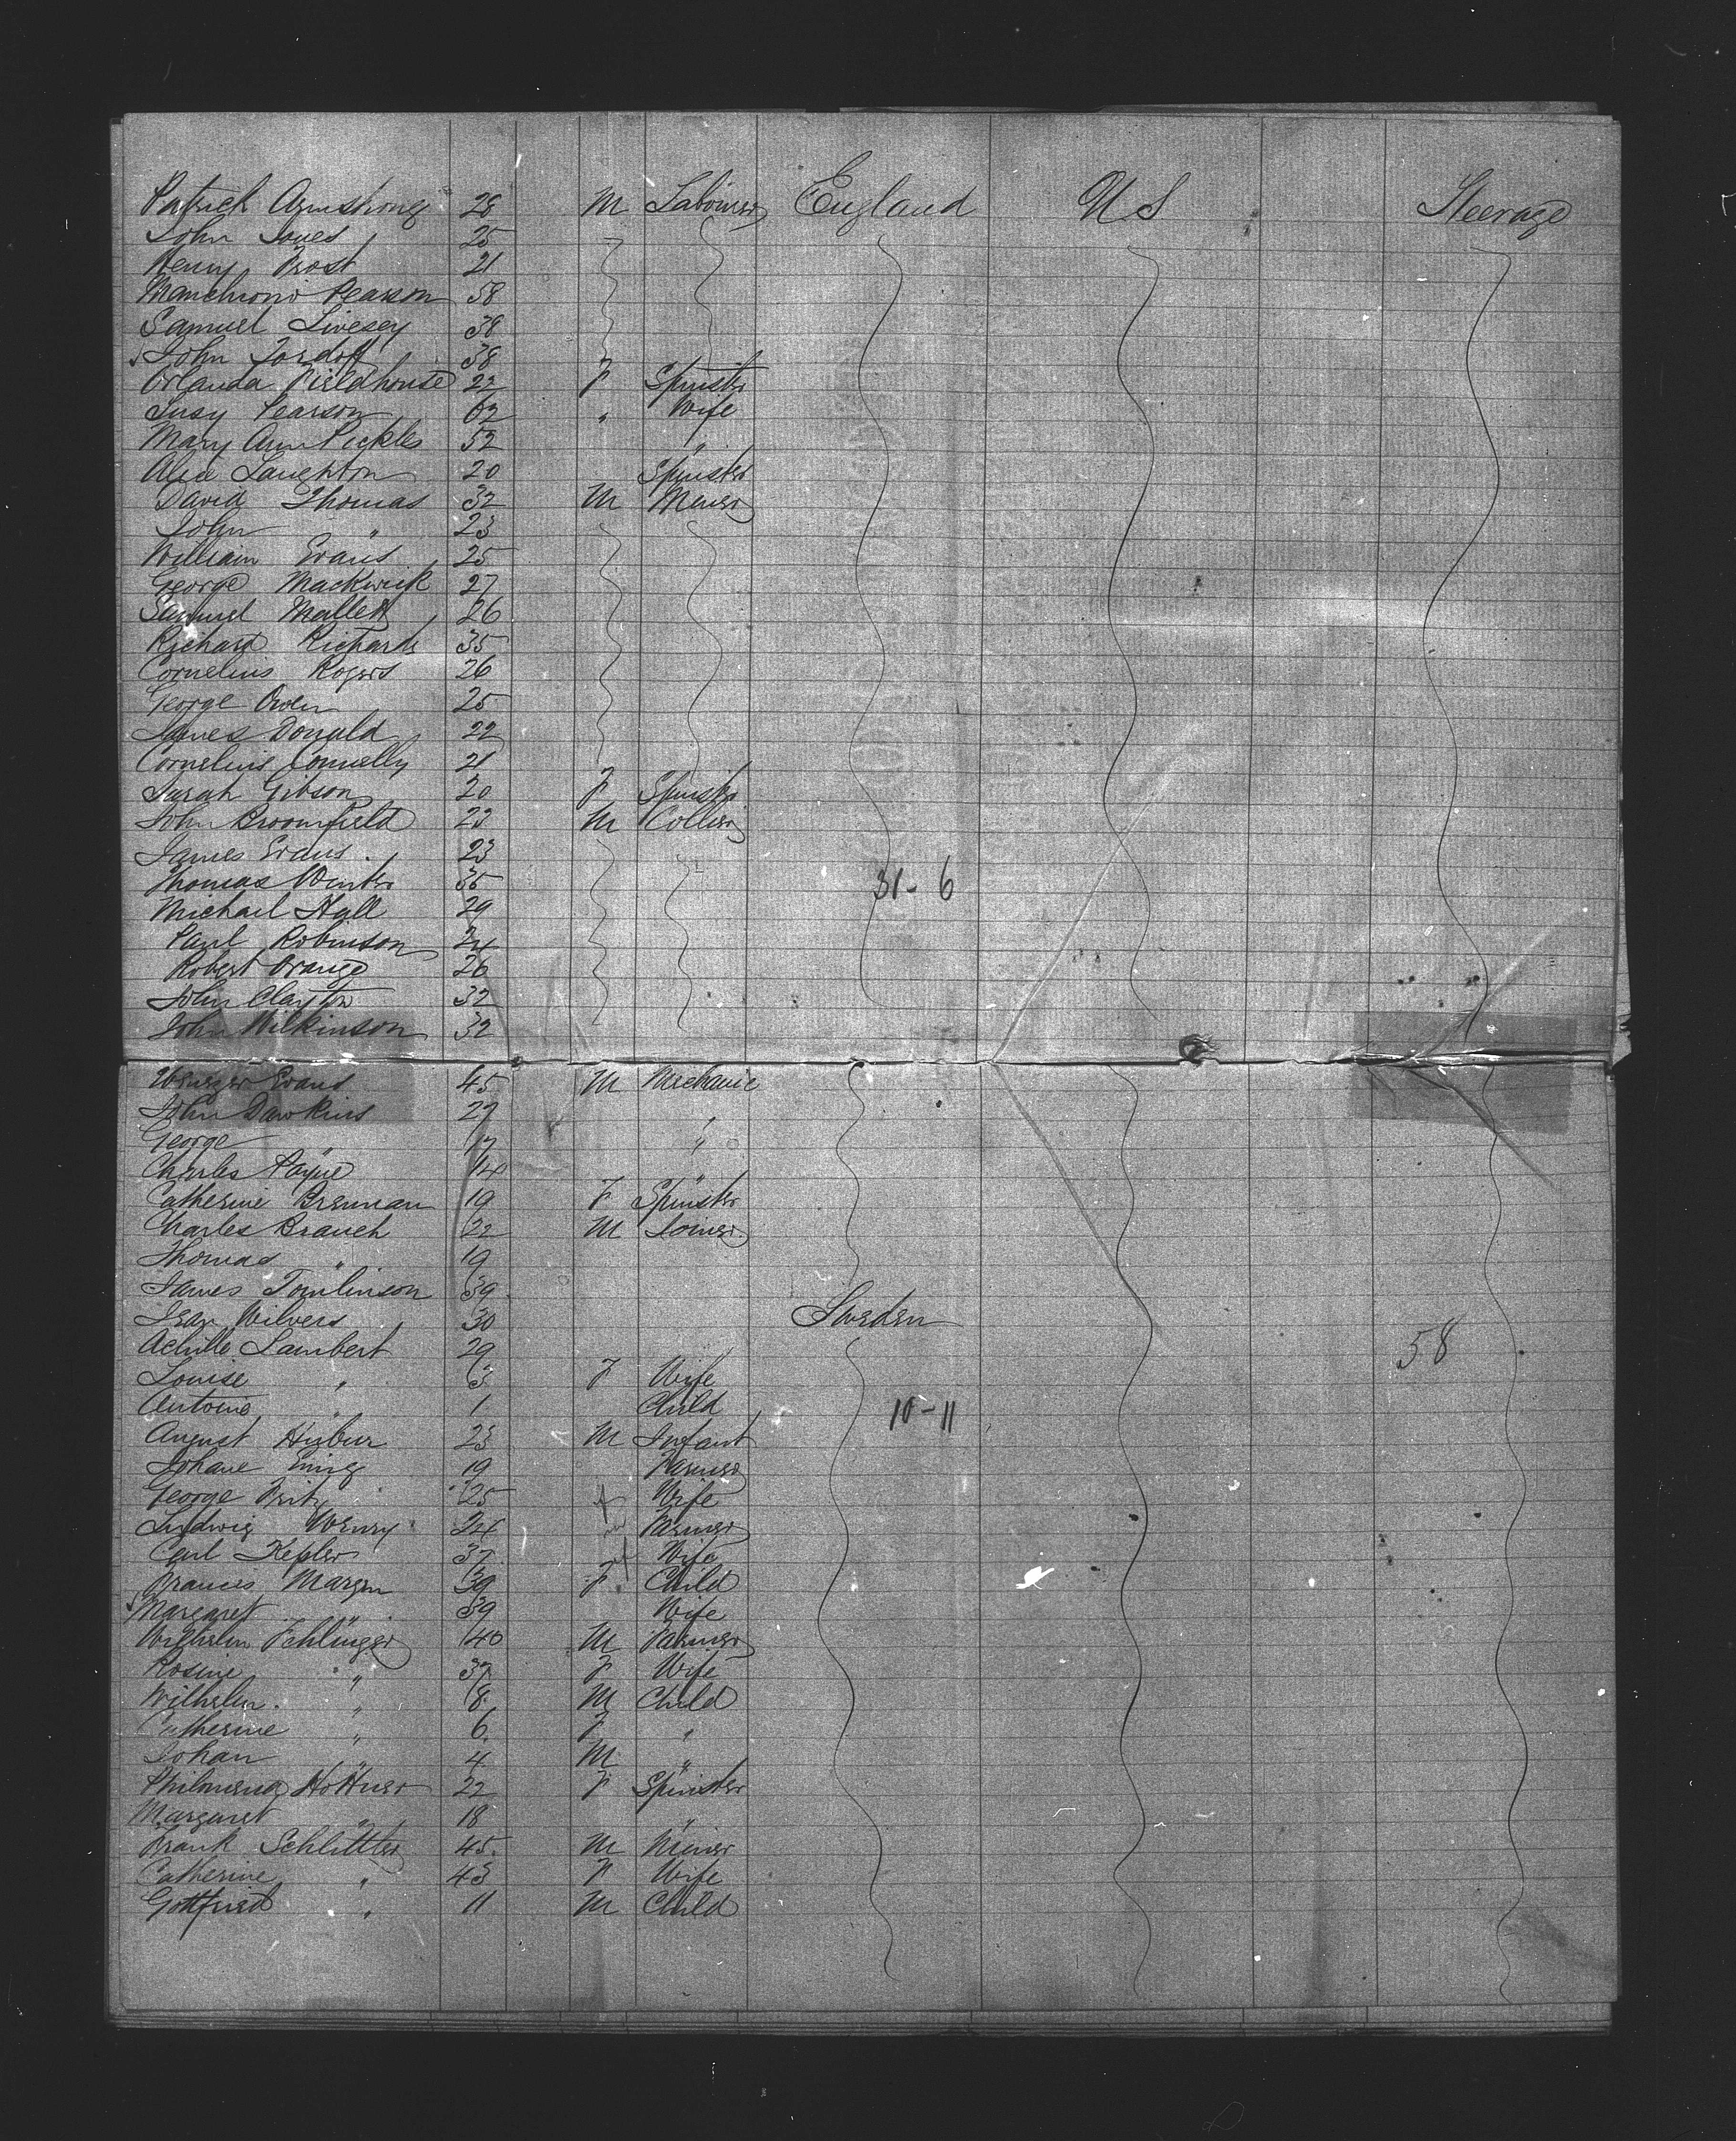 Patrick Armstrong 28 M Labourer England U S Steerage
John Jones 25
Henry Frost 21
Pearson 58
Samuel Livesey 38
John Tordoff 38
Orlanda Fieldhouse 22 F Spinster
Susy Pearson 62 " Wife
Mary Ann Pickles 52 "
Alice Laughton 20 Spinster
David Thomas 32 M Miner
John " 23
William Evans 25
George Mackwick 27
Samuel Mallett 26
Richard Richards 35
Cornelius Rogers 26
George Owen 25
James Donald 22
Cornelius Connelly 21
Sarah Gibson 20 F Spinster
John Broomfield 23 M Collier
James Evans 23
Thomas Winter 35 31-6
Michael Hall 29
Paul Robinson 24
Robert Orange 26
John Clayton 32
John Wilkinson 32
Evans 45 M Mechanic
John Dawkins 27 "
George " 17 "
Charles Payne 14 "
Catherine Brennan 19 F Spinster
Charles Branch 22 M Joiner
Thomas " 19
James Tomlinson 39
Jean Wilvers 30 Sweden
Achille Lambert 29 58
Louise " 3 F Wife
Antoine " 1 Child 10-11
August Hubur 23 M Infant
Johane 19 Farmer
George Fritz 25 f Wife
Ludwig Wenry 24 Farmer
Carl Kepler 37 Wife
Francis Margen 39 F Child
Margaret " 39 Wife
Wilhelm Fehlinger 40 M Farmer
Rosine " 37 F Wife
Wilhelm " 8 M Child
Catherine " 6 F "
Johan " 4 M "
Philomena Höttner 22 F Spinster
Margaret " 18 "
Frank Schlittler 45 M Miner
Catherine " 43 F Wife
Gottfried " 11 M Child